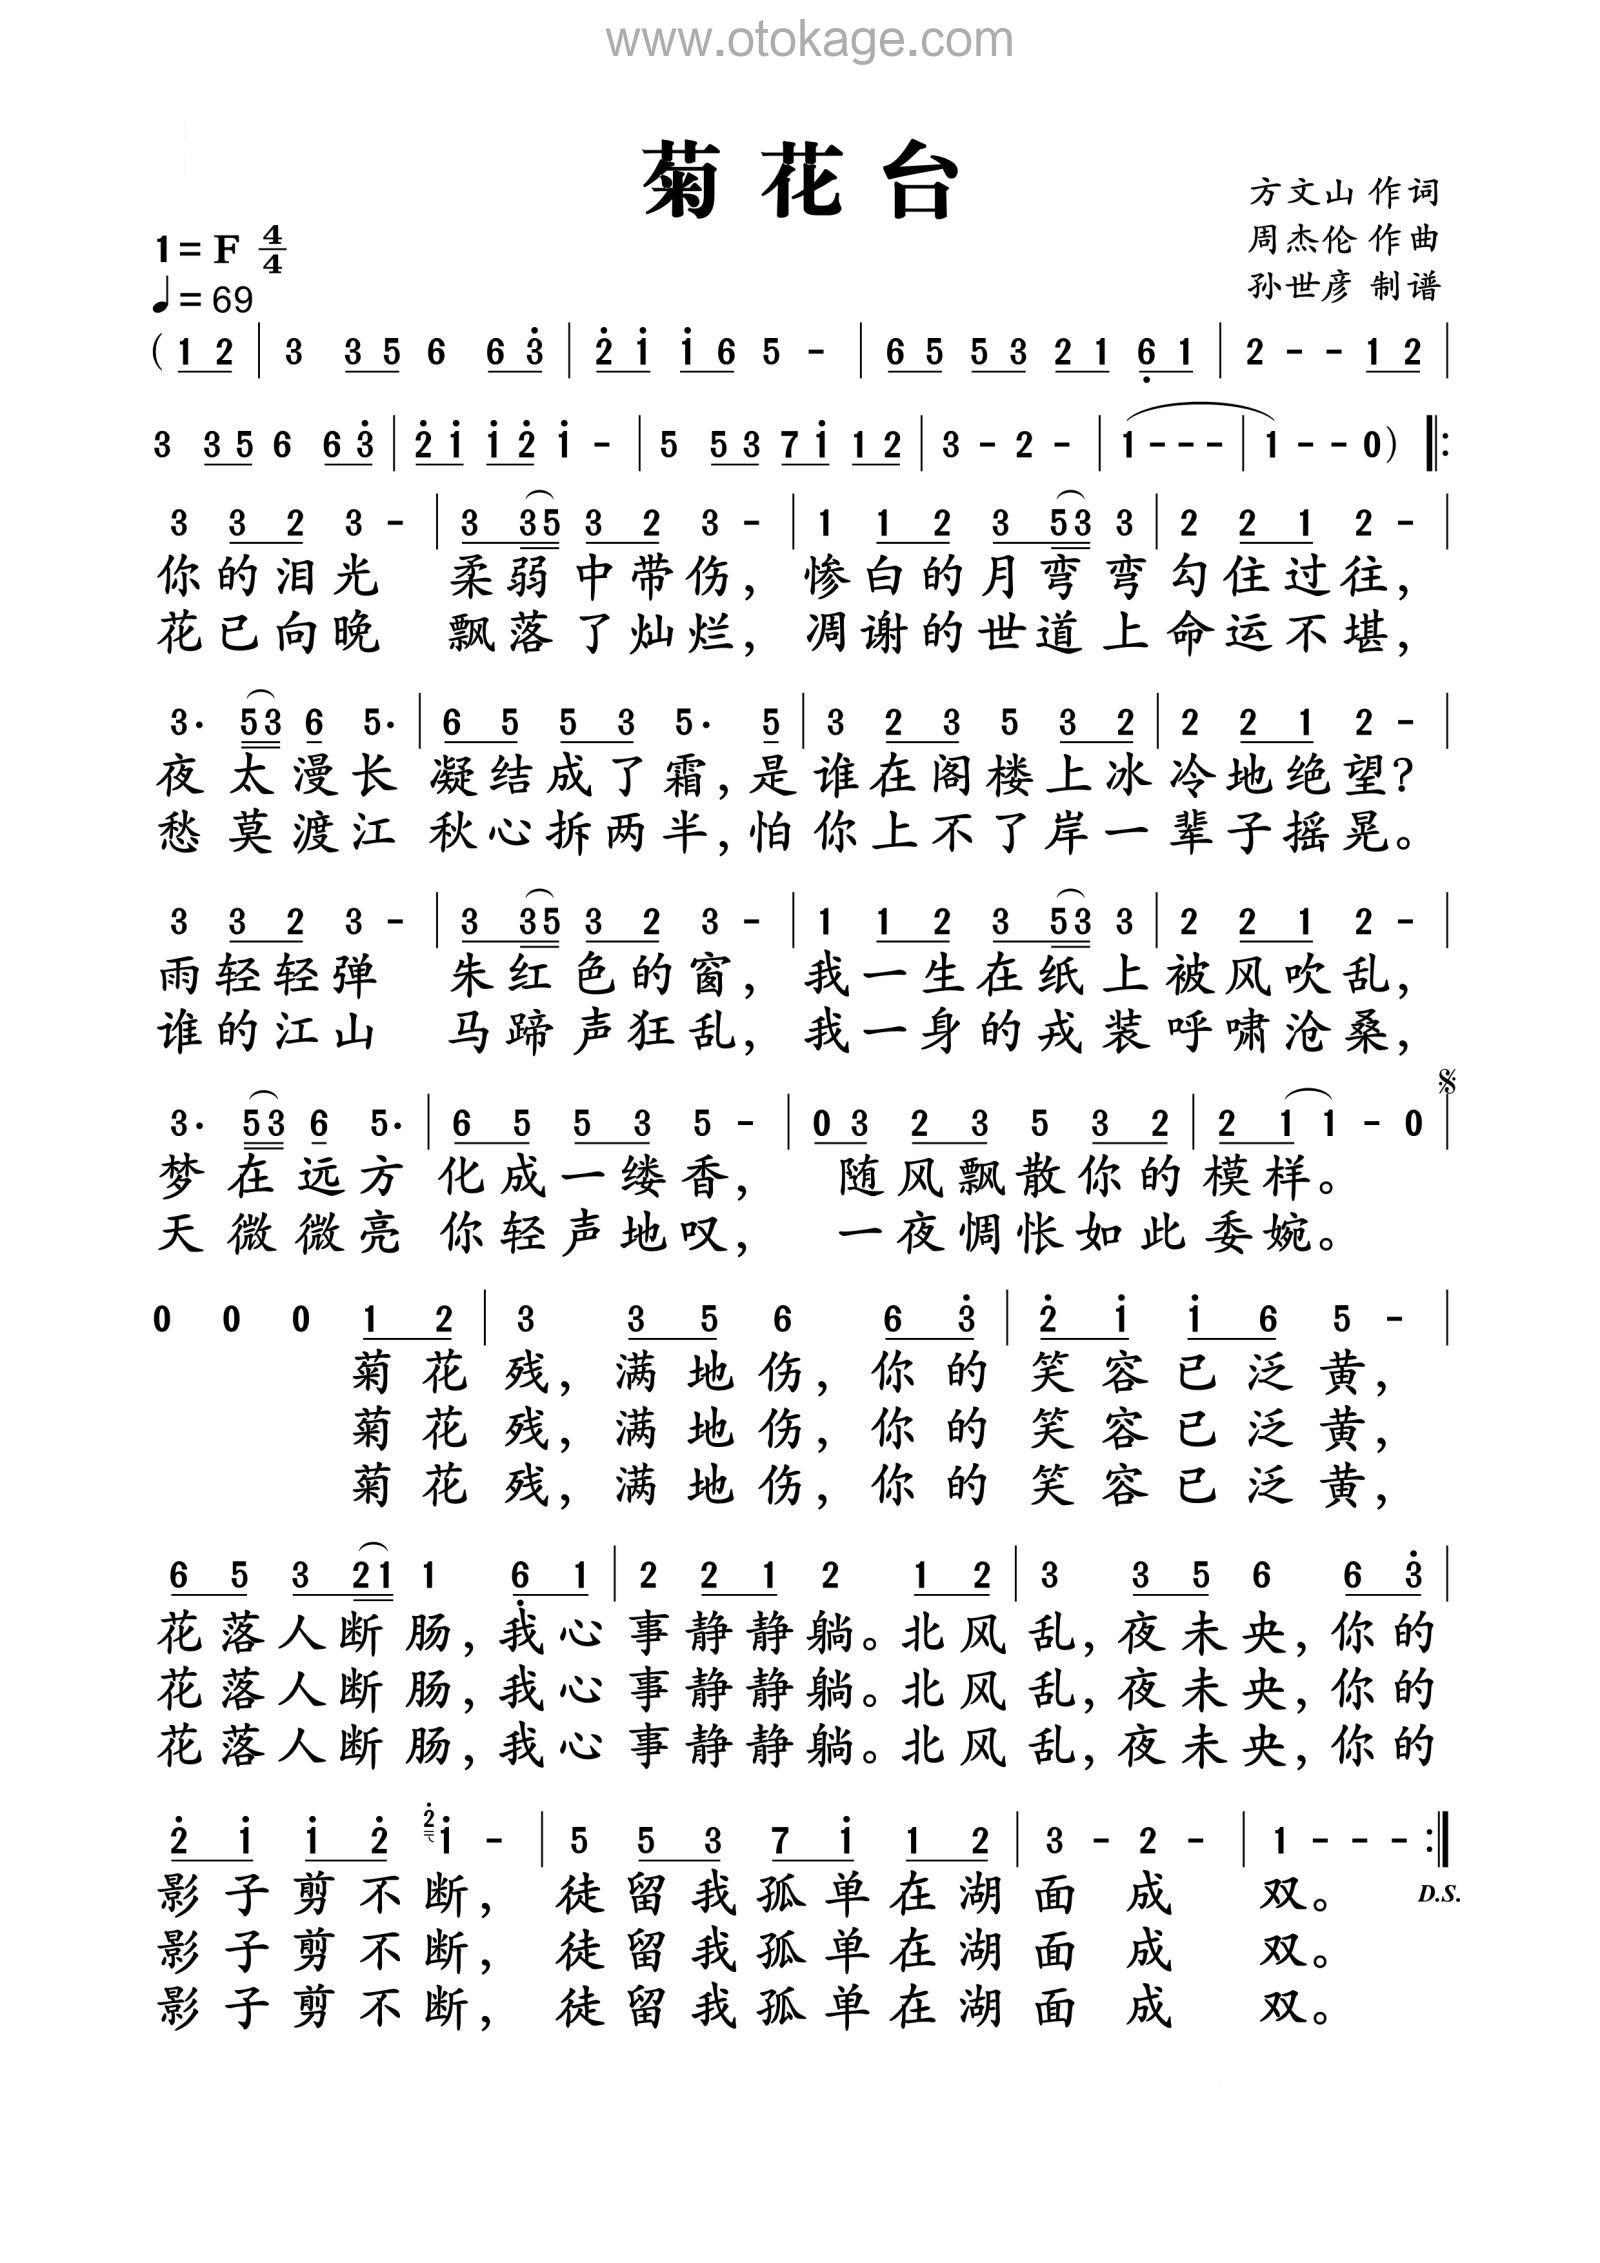 www.otokage.com
菊花台
方文山 作词
1=F 4/4
周杰伦 作曲
♩=69
孙世彦 制谱
(1 2 | 3 3 5 6 6 3̇ | 2̇ 1̇ 1̇ 6 5 - | 6 5 5 3 2 1 6̣ 1 | 2 - - 1 2 |
3 3 5 6 6 3̇ | 2̇ 1̇ 1̇ 2̇ 1̇ - | 5 5 3 7 1̇ 1 2 | 3 - 2 - | 1 - - - | 1 - - 0) ‖:
3 3 2 3 - | 3 3 5 3 2 3 - | 1 1 2 3 5 3 3 | 2 2 1 2 - |
你的泪光 柔弱中带伤,惨白的月弯弯勾住过往,
花已向晚 飘落了灿烂,凋谢的世道上命运不堪,
3. 5 3 6 5. | 6 5 5 3 5. 5 | 3 2 3 5 3 2 | 2 2 1 2 - |
夜太漫长 凝结成了霜,是谁在阁楼上冰冷地绝望?
愁莫渡江 秋心拆两半,怕你上不了岸一辈子摇晃。
3 3 2 3 - | 3 3 5 3 2 3 - | 1 1 2 3 5 3 3 | 2 2 1 2 - |
雨轻轻弹 朱红色的窗,我一生在纸上被风吹乱,
谁的江山 马蹄声狂乱,我一身的戎装呼啸沧桑,
3. 5 3 6 5. | 6 5 5 3 5 - | 0 3 2 3 5 3 2 | 2 1 1 - 0 |
梦在远方 化成一缕香, 随风飘散你的模样。
天微微亮 你轻声地叹, 一夜惆怅如此委婉。
0 0 0 1 2 | 3 3 5 6 6 3̇ | 2̇ 1̇ 1̇ 6 5 - |
菊花残,满地伤,你的笑容已泛黄,
菊花残,满地伤,你的笑容已泛黄,
菊花残,满地伤,你的笑容已泛黄,
6 5 3 2 1 1 6̣ 1 | 2 2 1 2 1 2 | 3 3 5 6 6 3̇ |
花落人断肠,我心事静静躺。北风乱,夜未央,你的
花落人断肠,我心事静静躺。北风乱,夜未央,你的
花落人断肠,我心事静静躺。北风乱,夜未央,你的
2̇ 1̇ 1̇ 2̇ 2̇ 1̇ - | 5 5 3 7 1̇ 1 2 | 3 - 2 - | 1 - - - :‖
影子剪不断,徒留我孤单在湖面成双。 D.S.
影子剪不断,徒留我孤单在湖面成双。
影子剪不断,徒留我孤单在湖面成双。